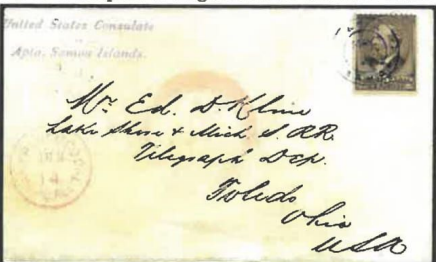 United States Consulate
Apia, Samoa Islands.
Mr. Ed. D. Kline
Lake Shore & Mich S. RR.
Telegraph Dep.
Toledo
Ohio
USA
14